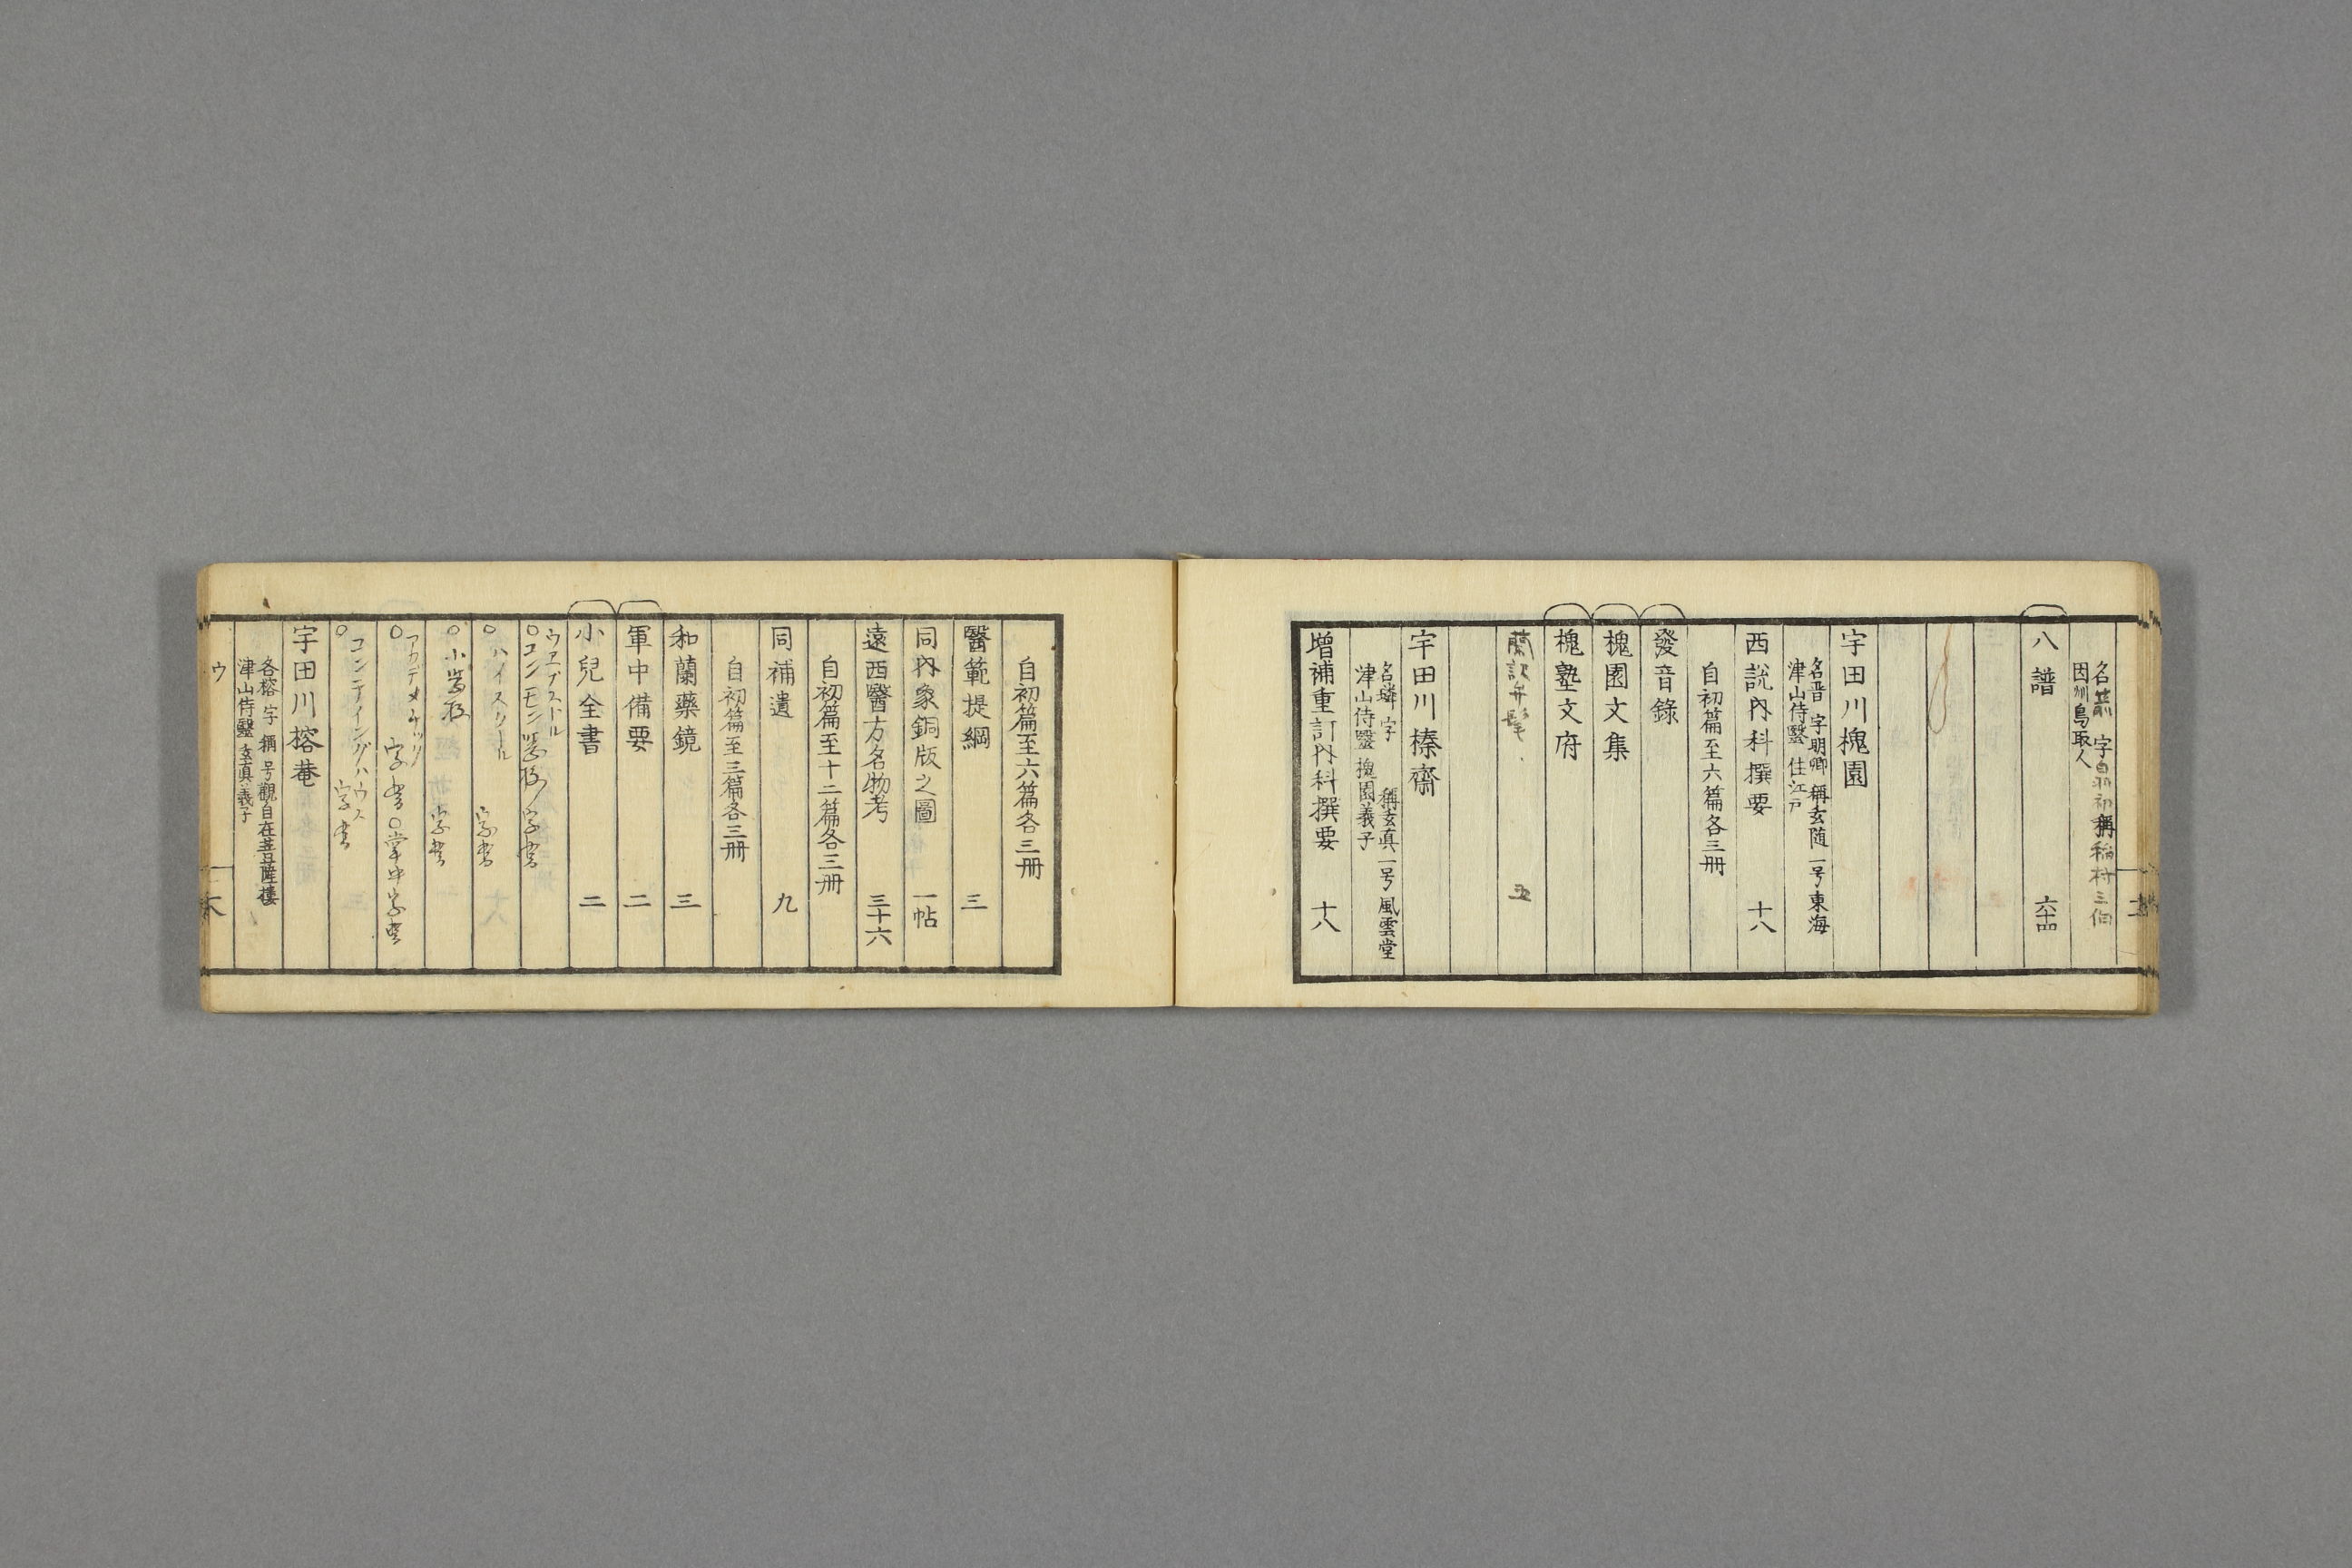 名箭 字 初稱稲村三伯
因州鳥取人
八譜 六十四
宇田川槐園
名晋 字明卿 稱玄随 一号東海
津山侍醫 住江戸
西説内科撰要 十八
自初篇至六篇各三册
發音錄
槐園文集
槐塾文府
蘭訳弁髦 五
宇田川榛齋
名璘 字 稱玄真 一号風雲堂
津山侍醫 槐園義子
增補重訂内科撰要 十八
自初篇至六篇各三册
醫範提綱 三
同内象銅版之圖 一帖
遠西醫方名物考 三十六
自初篇至十二篇各三册
同補遺 九
自初篇至三篇各三册
和蘭藥鏡 三
軍中備要 二
小兒全書 二
○コンモン 字書
○ハイスクール 字書
○小 字書
○アカデメ 字書○掌中字書
○コンテイングハウス 字書
宇田川榕菴
各榕 字 稱 号觀自在菩薩樓
津山侍醫 玄真義子
ウ